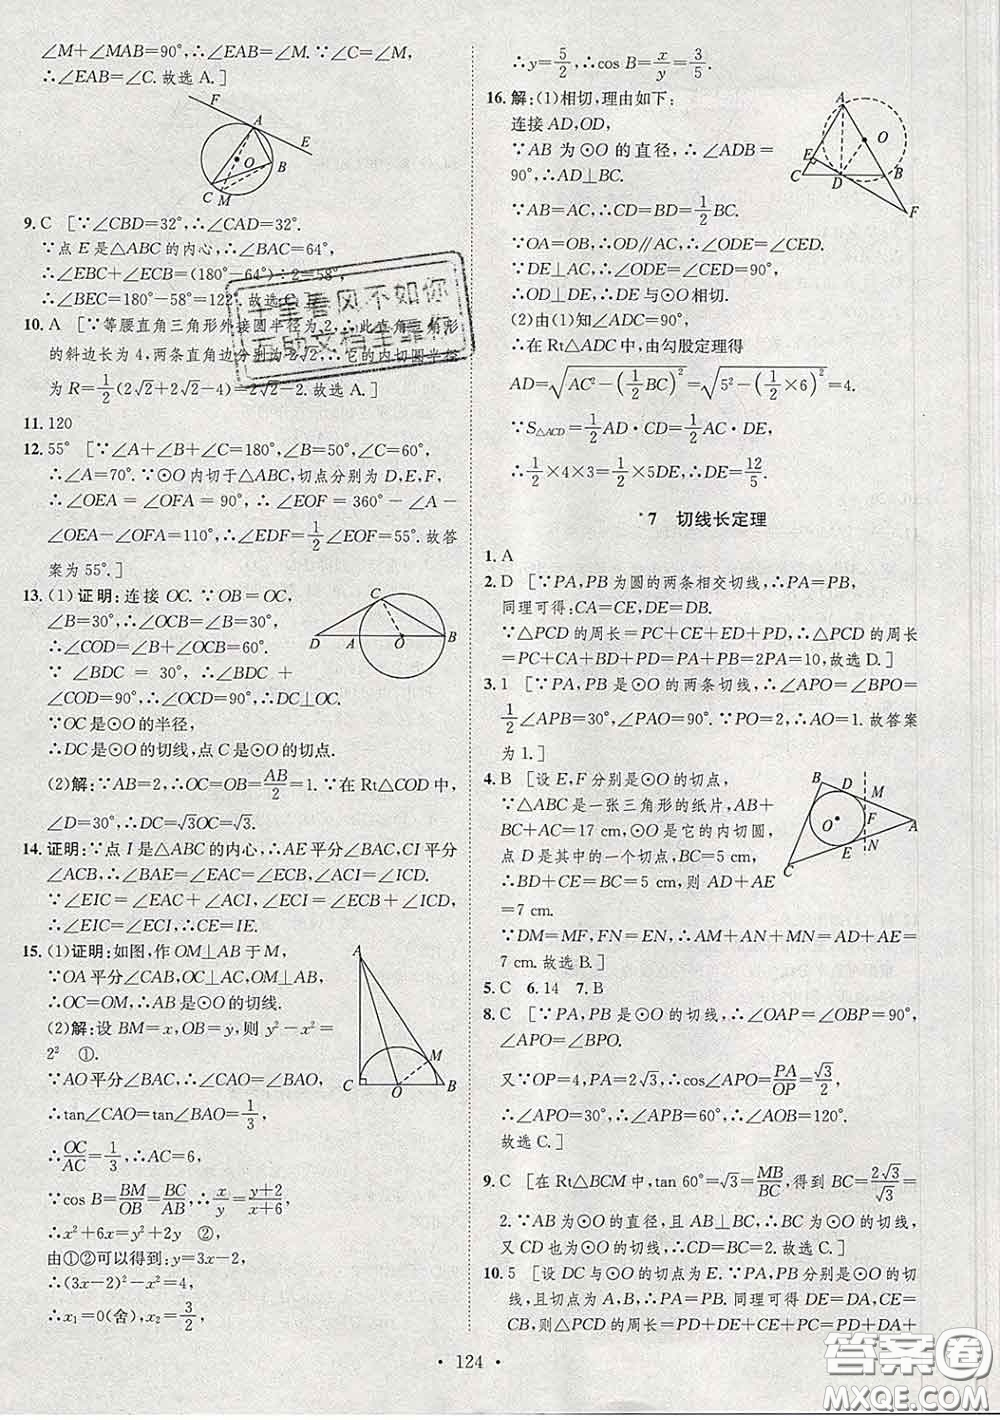 ∠M+∠MAB=90°,∴∠EAB=∠M.∵∠C=∠M,
∴∠EAB=∠C.故选A.]
F
A
E
O
B
C
M
9.C [∵∠CBD=32°,∴∠CAD=32°.
∵点E是△ABC的内心,∴∠BAC=64°,
∴∠EBC+∠ECB=(180°-64°)÷2=58°,
∴∠BEC=180°-58°=122°.故选C.]
10.A [∵等腰直角三角形外接圆半径为2,∴此直角三角形
的斜边长为4,两条直角边分别为2√2,∴它的内切圆半径
为R=1/2(2√2+2√2-4)=2√2-2.故选A.]
11.120
12.55° [∵∠A+∠B+∠C=180°,∠B=50°,∠C=60°,
∴∠A=70°.∵⊙O内切于△ABC,切点分别为D,E,F,
∴∠OEA=∠OFA=90°,∴∠EOF=360°-∠A-
∠OEA-∠OFA=110°,∴∠EDF=1/2∠EOF=55°.故答
案为55°.]
13.(1)证明:连接OC.∵OB=OC,
∠B=30°,∴∠OCB=∠B=30°,
∴∠COD=∠B+∠OCB=60°.
∵∠BDC=30°,∴∠BDC+
∠COD=90°,∴∠DCO=90°,∴DC⊥OC.
∵OC是⊙O的半径,
∴DC是⊙O的切线,点C是⊙O的切点.
C
D
A
O
B
(2)解:∵AB=2,∴OC=OB=AB/2=1.∵在Rt△COD中,
∠D=30°,∴DC=√3OC=√3.
14.证明:∵点I是△ABC的内心,∴AE平分∠BAC,CI平分
∠ACB,∴∠BAE=∠EAC=∠BCE,∠ACI=∠ECD.
∵∠EIC=∠EAC+∠ACI,∠ECI=∠BCE+∠BCI,
∴∠EIC=∠ECI,∴CE=IE.
15.(1)证明:如图,作OM⊥AB于M,
∵OA平分∠CAB,OC⊥AC,OM⊥AB,
∴OC=OM,∴AB是⊙O的切线.
(2)解:设BM=x,OB=y,则y²-x²=
2² ①.
∵AO平分∠BAC,∴∠CAO=∠BAO,
∴tan∠CAO=tan∠BAO=1/3,
∴OC/AC=1/3,∴AC=6,
∵cos B=BM/OB=BC/AB,∴x/y=(y+2)/(x+6),
∴x²+6x=y²+2y ②
由①②可以得到:y=3x-2,
∴(3x-2)²-x²=4,
∴x₁=0(舍),x₂=3/2,
A
M
C
O
B
∴y=5/2,∴cos B=x/y=3/5.
16.解:(1)相切,理由如下:
连接AD,OD,
∵AB为⊙O的直径,∴∠ADB=
90°,∴AD⊥BC.
∵AB=AC,∴CD=BD=1/2BC.
∵OA=OB,∴OD∥AC,∴∠ODE=∠CED.
∵DE⊥AC,∴∠ODE=∠CED=90°,
∴OD⊥DE,∴DE与⊙O相切.
(2)由(1)知∠ADC=90°,
∴在Rt△ADC中,由勾股定理得
AD=√(AC²-(1/2BC)²)=√(5²-(1/2×6)²)=4.
∵S△ACD=1/2AD·CD=1/2AC·DE,
∴1/2×4×3=1/2×5DE,∴DE=12/5.
A
O
E
C
D
B
F
*7 切线长定理
1.A
2.D [∵PA,PB为圆的两条相交切线,∴PA=PB,
同理可得:CA=CE,DE=DB.
∵△PCD的周长=PC+CE+ED+PD,∴△PCD的周长
=PC+CA+BD+PD=PA+PB=2PA=10,故选D.]
3.1 [∵PA,PB是⊙O的两条切线,∴∠APO=∠BPO=
1/2∠APB=30°,∠PAO=90°.∵PO=2,∴AO=1.故答案
为1.]
4.B [设E,F分别是⊙O的切点,
∵△ABC是一张三角形的纸片,AB+
BC+AC=17 cm,⊙O是它的内切圆,
点D是其中的一个切点,BC=5 cm,
∴BD+CE=BC=5 cm,则AD+AE=
7 cm.
∵DM=MF,FN=EN,∴AM+AN+MN=AD+AE=
7 cm.故选B.]
B
D
M
O
F
A
E
N
C
5.C 6.14 7.B
8.C [∵PA,PB是⊙O的切线,∴∠OAP=∠OBP=90°,
∠APO=∠BPO.
又∵OP=4,PA=2√3,∴cos∠APO=PA/OP=√3/2,
∴∠APO=30°,∴∠APB=60°,∴∠AOB=120°.
故选C.]
9.C [在Rt△BCM中,tan 60°=√3=MB/BC,得到BC=2√3/√3=
2.∵AB为⊙O的直径,且AB⊥BC,∴BC为⊙O的切线,
又CD也为⊙O的切线,∴CD=BC=2.故选C.]
10.5 [设DC与⊙O的切点为E.∵PA,PB分别是⊙O的切
线,且切点为A,B,∴PA=PB.同理可得DE=DA,CE=
CB,则△PCD的周长=PD+DE+PC+CE=PD+DA+
· 124 ·
千里看风不如你
互助文档全靠你
答案圈
MXQE.COM